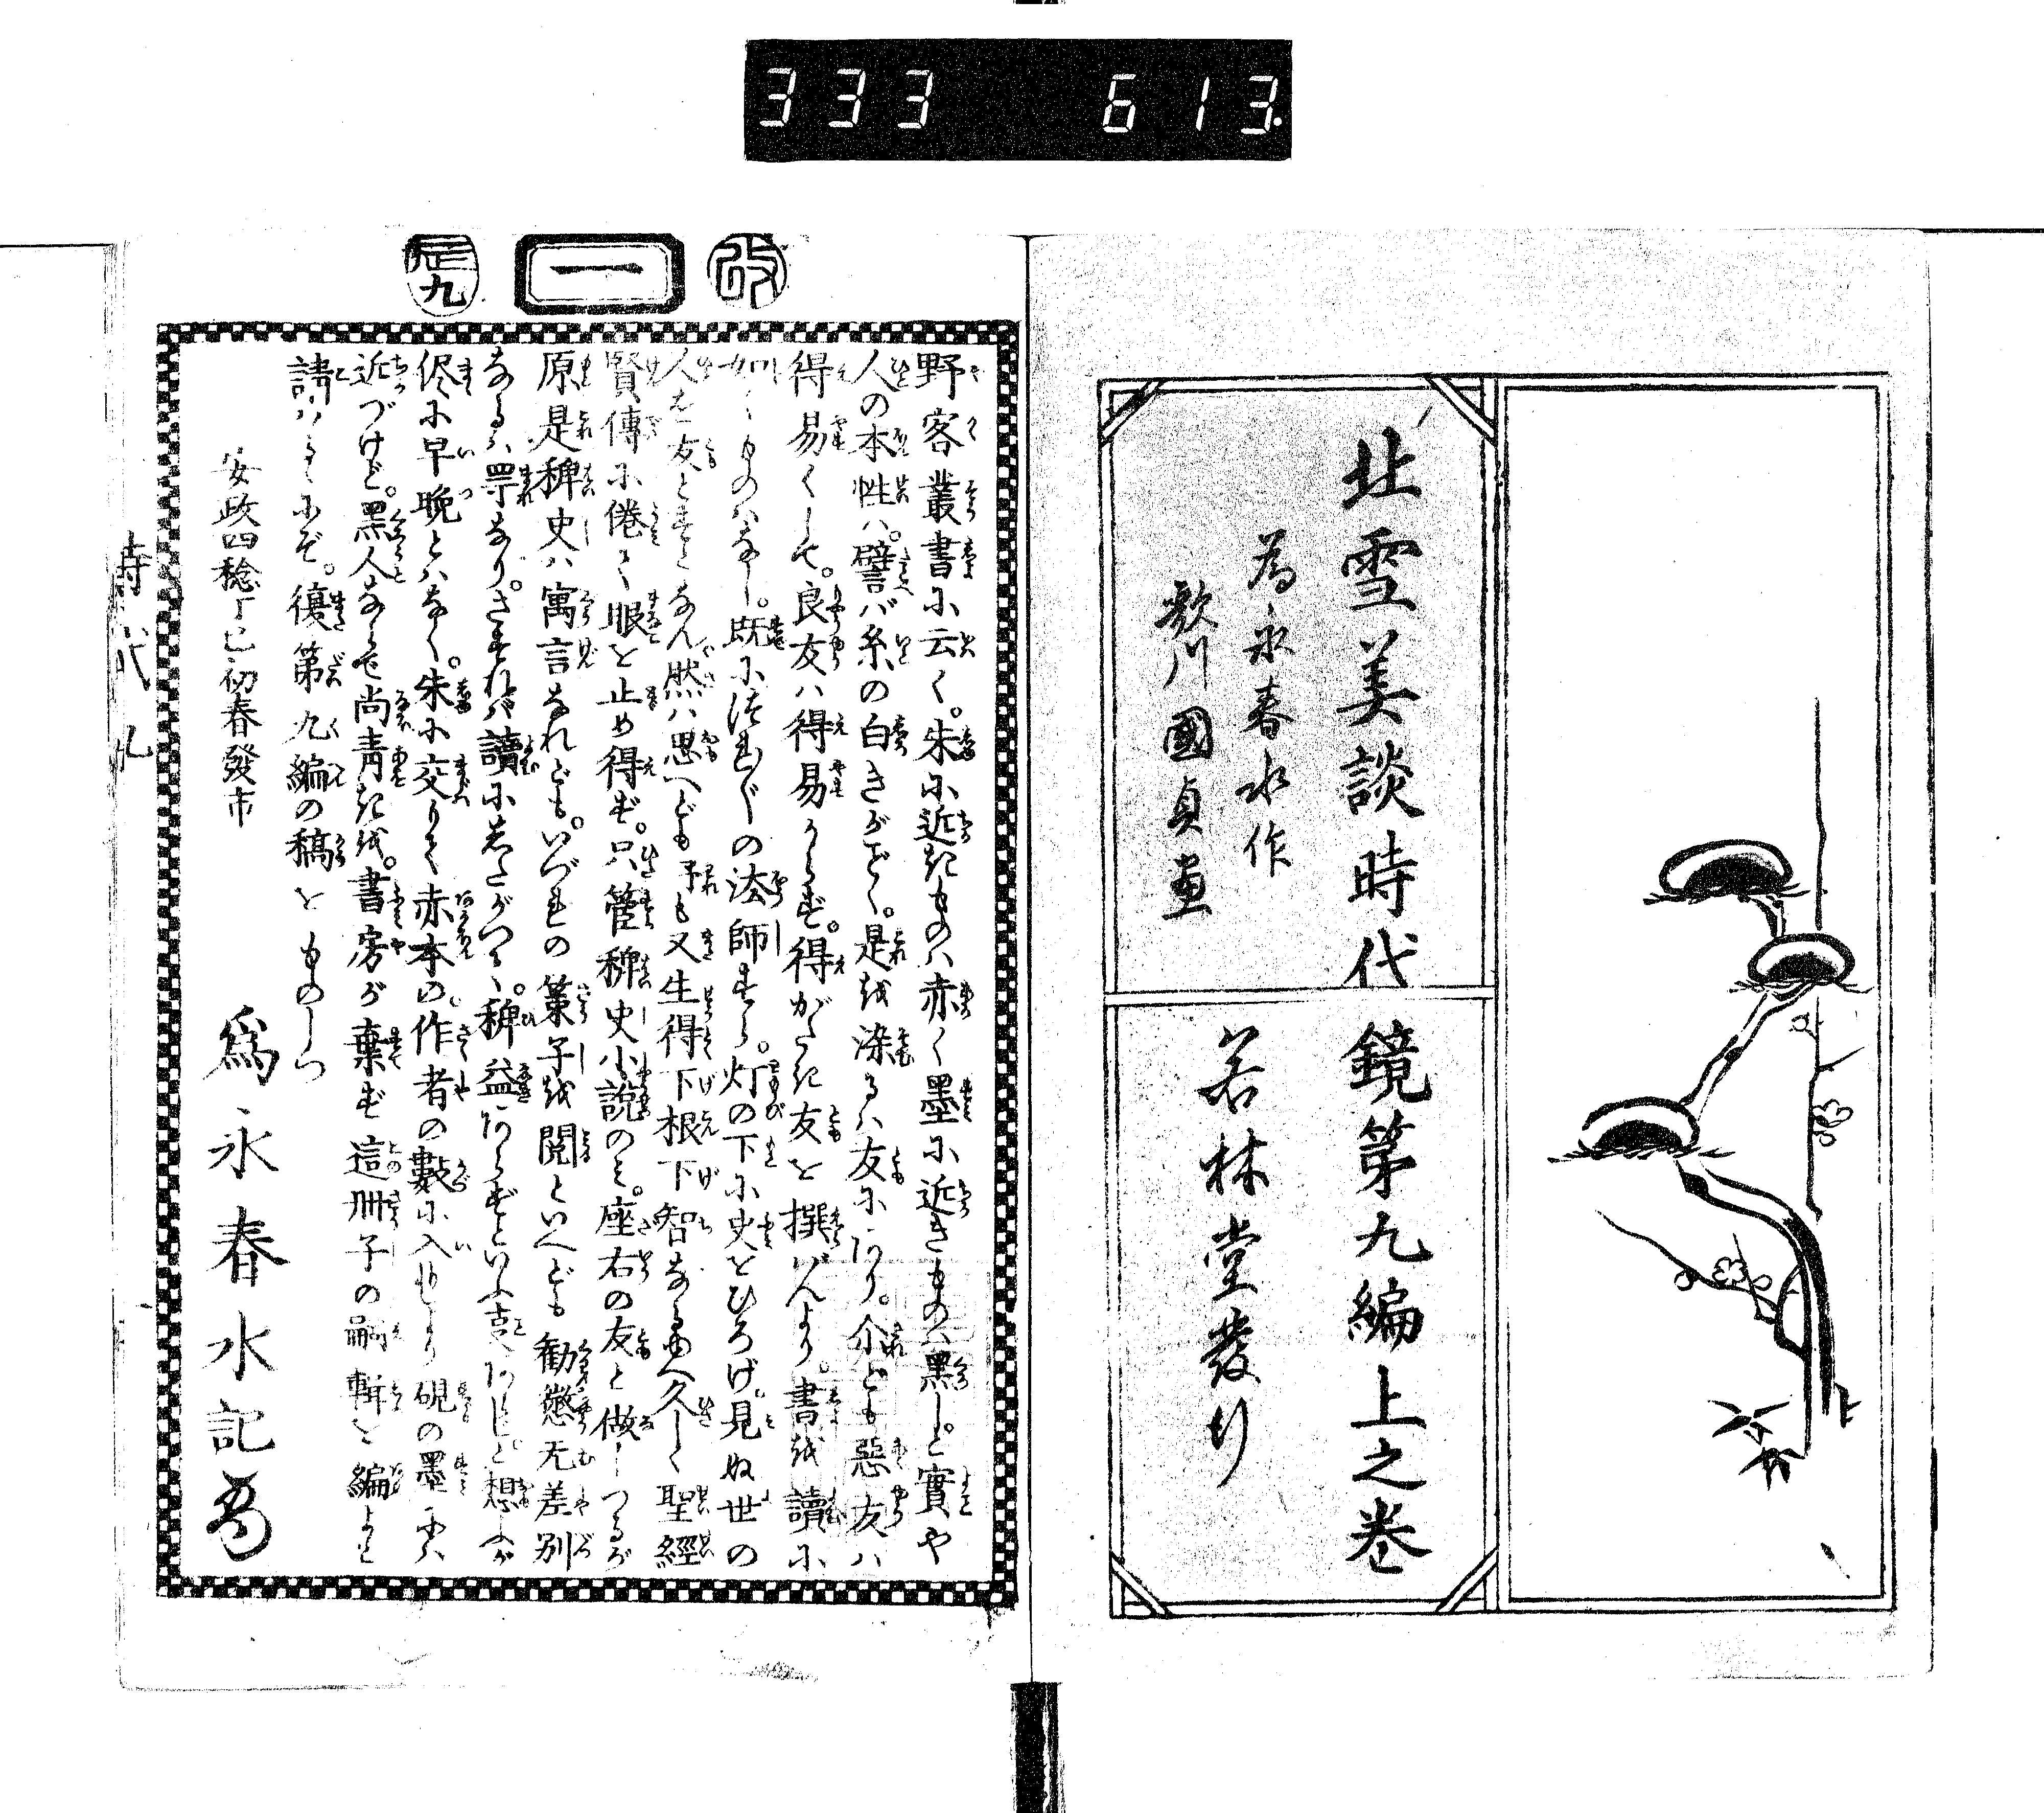 333 613.
北雪美談時代鏡第九編上之巻
為永春水作
歌川國貞画
若林堂發行
改
一
巳九
野客叢書に云く。朱に近きものハ赤く墨に近きものハ黒しと實や
人の本性ハ。譬バ糸の白きがごとく。是を染るハ友にあり。介ども惡友ハ
得易くして。良友ハ得易からず。得がたき友を撰バんより。書を讀に
如くものハなし。既につれ〴〵の法師すら。灯の下に史をひろげ。見ぬ世の
人を友とすとなん然ハ思へども予も又生得下根下智なるゆへ久しく聖經
賢傳に倦て眼を止め得ず。只管稗史小説のミ。座右の友と做しつるが
原是稗史ハ寓言なれども。いづれの菓子を閲といへども勸懲无差別
なるハ罕なり。されバ讀にしたがつて、稗益あらずといふ事あらじと想へが
侭に早晩とハなく。朱に交りて赤本の。作者の數に入しより硯の墨に
近づけど。黒人ならで尚青きを。書房が棄ず這冊子の嗣輯を編よと
請ハるゝにぞ。復第九編の稿をものしつ
安政四稔丁巳初春發市
為永春水記
時代九